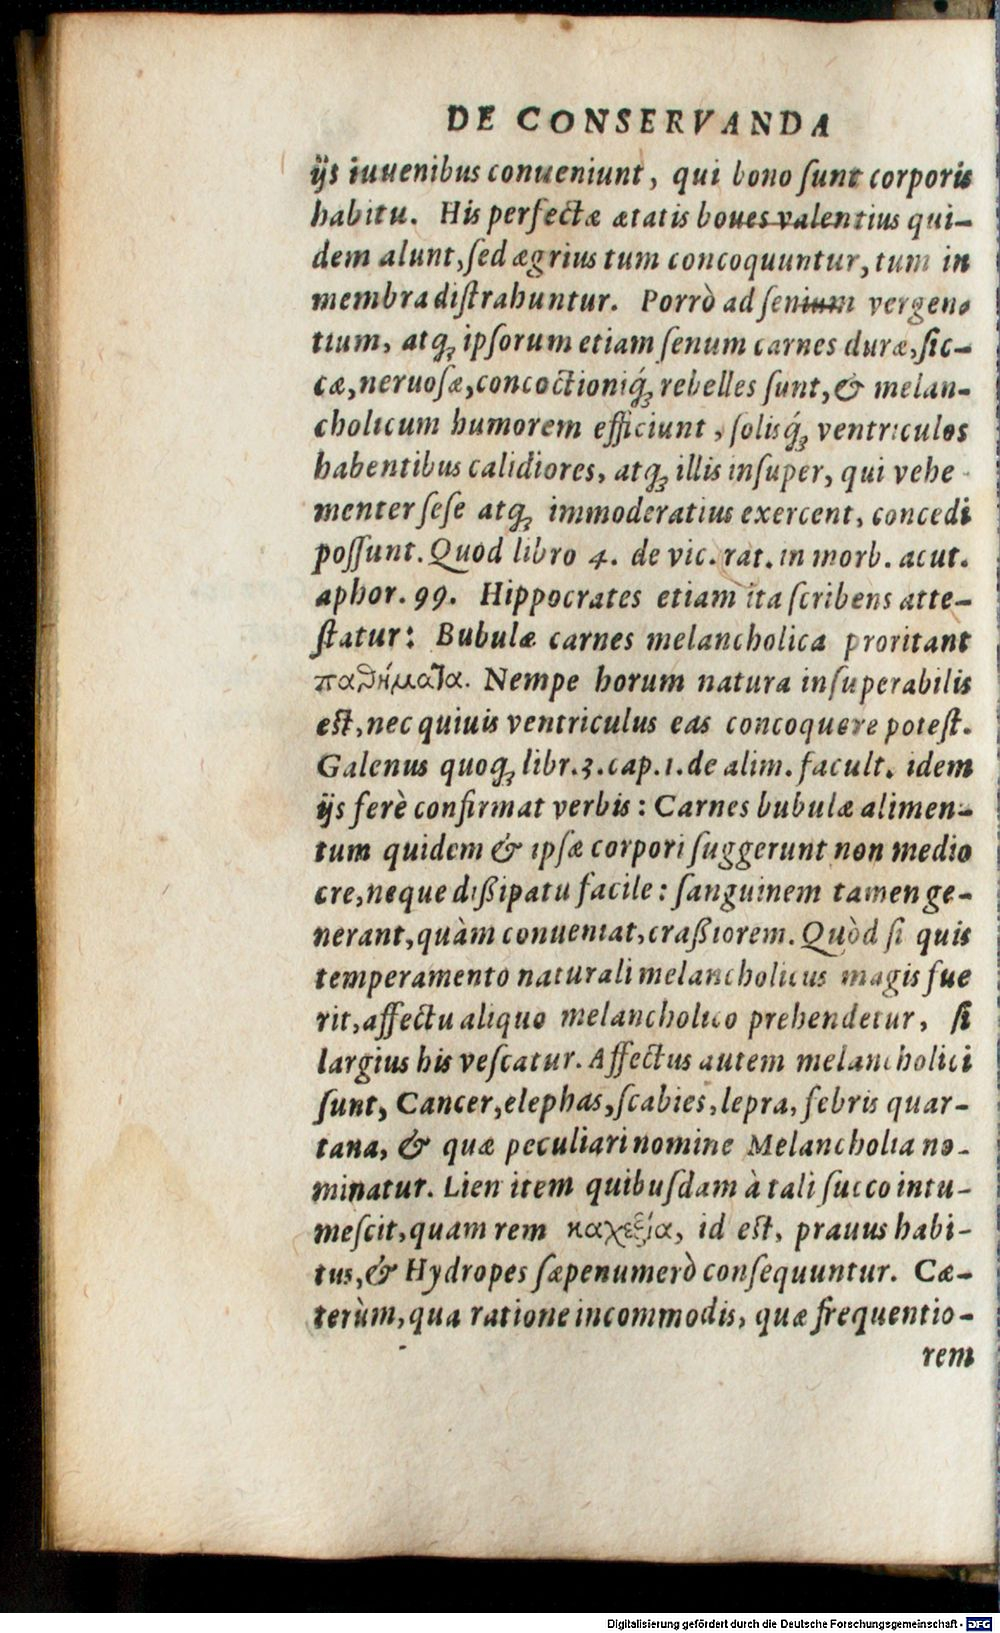 DE CONSERVANDA
ijs iuuenibus conueniunt, qui bono ſunt corporis
habitu. His perfectæ ætatis boues valentius qui-
dem alunt, ſed ægrius tum concoquuntur, tum in
membra diſtrahuntur. Porrò ad ſenium vergen-
tium, atqꝫ ipſorum etiam ſenum carnes duræ, ſic-
cæ, neruoſæ, concoctioniq́ꝫ rebelles ſunt, & melan-
cholicum humorem efficiunt, ſolisq́ꝫ ventriculos
habentibus calidiores, atqꝫ illis inſuper, qui vehe-
menter ſeſe atqꝫ immoderatius exercent, concedi
poſſunt. Quod libro 4. de vic. rat. in morb. acut.
aphor. 99. Hippocrates etiam ita ſcribens atte-
ſtatur: Bubulæ carnes melancholica proritant
παθήματα. Nempe horum natura inſuperabilis
eſt, nec quiuis ventriculus eas concoquere poteſt.
Galenus quoqꝫ libr. 3. cap. 1. de alim. facult. idem
ijs ferè confirmat verbis: Carnes bubulæ alimen-
tum quidem & ipſæ corpori ſuggerunt non medio
cre, neque dißipatu facile: ſanguinem tamen ge-
nerant, quàm conueniat, craßiorem. Quòd ſi quis
temperamento naturali melancholicus magis fue
rit, affectu aliquo melancholico prehendetur, ſi
largius his veſcatur. Affectus autem melancholici
ſunt, Cancer, elephas, ſcabies, lepra, febris quar-
tana, & quæ peculiari nomine Melancholia no-
minatur. Lien item quibuſdam à tali ſucco intu-
meſcit, quam rem καχεξία, id eſt, prauus habi-
tus, & Hydropes ſæpenumerò conſequuntur. Cæ-
terùm, qua ratione incommodis, quæ frequentio-
rem
Digitalisierung gefördert durch die Deutsche Forschungsgemeinschaft - DFG